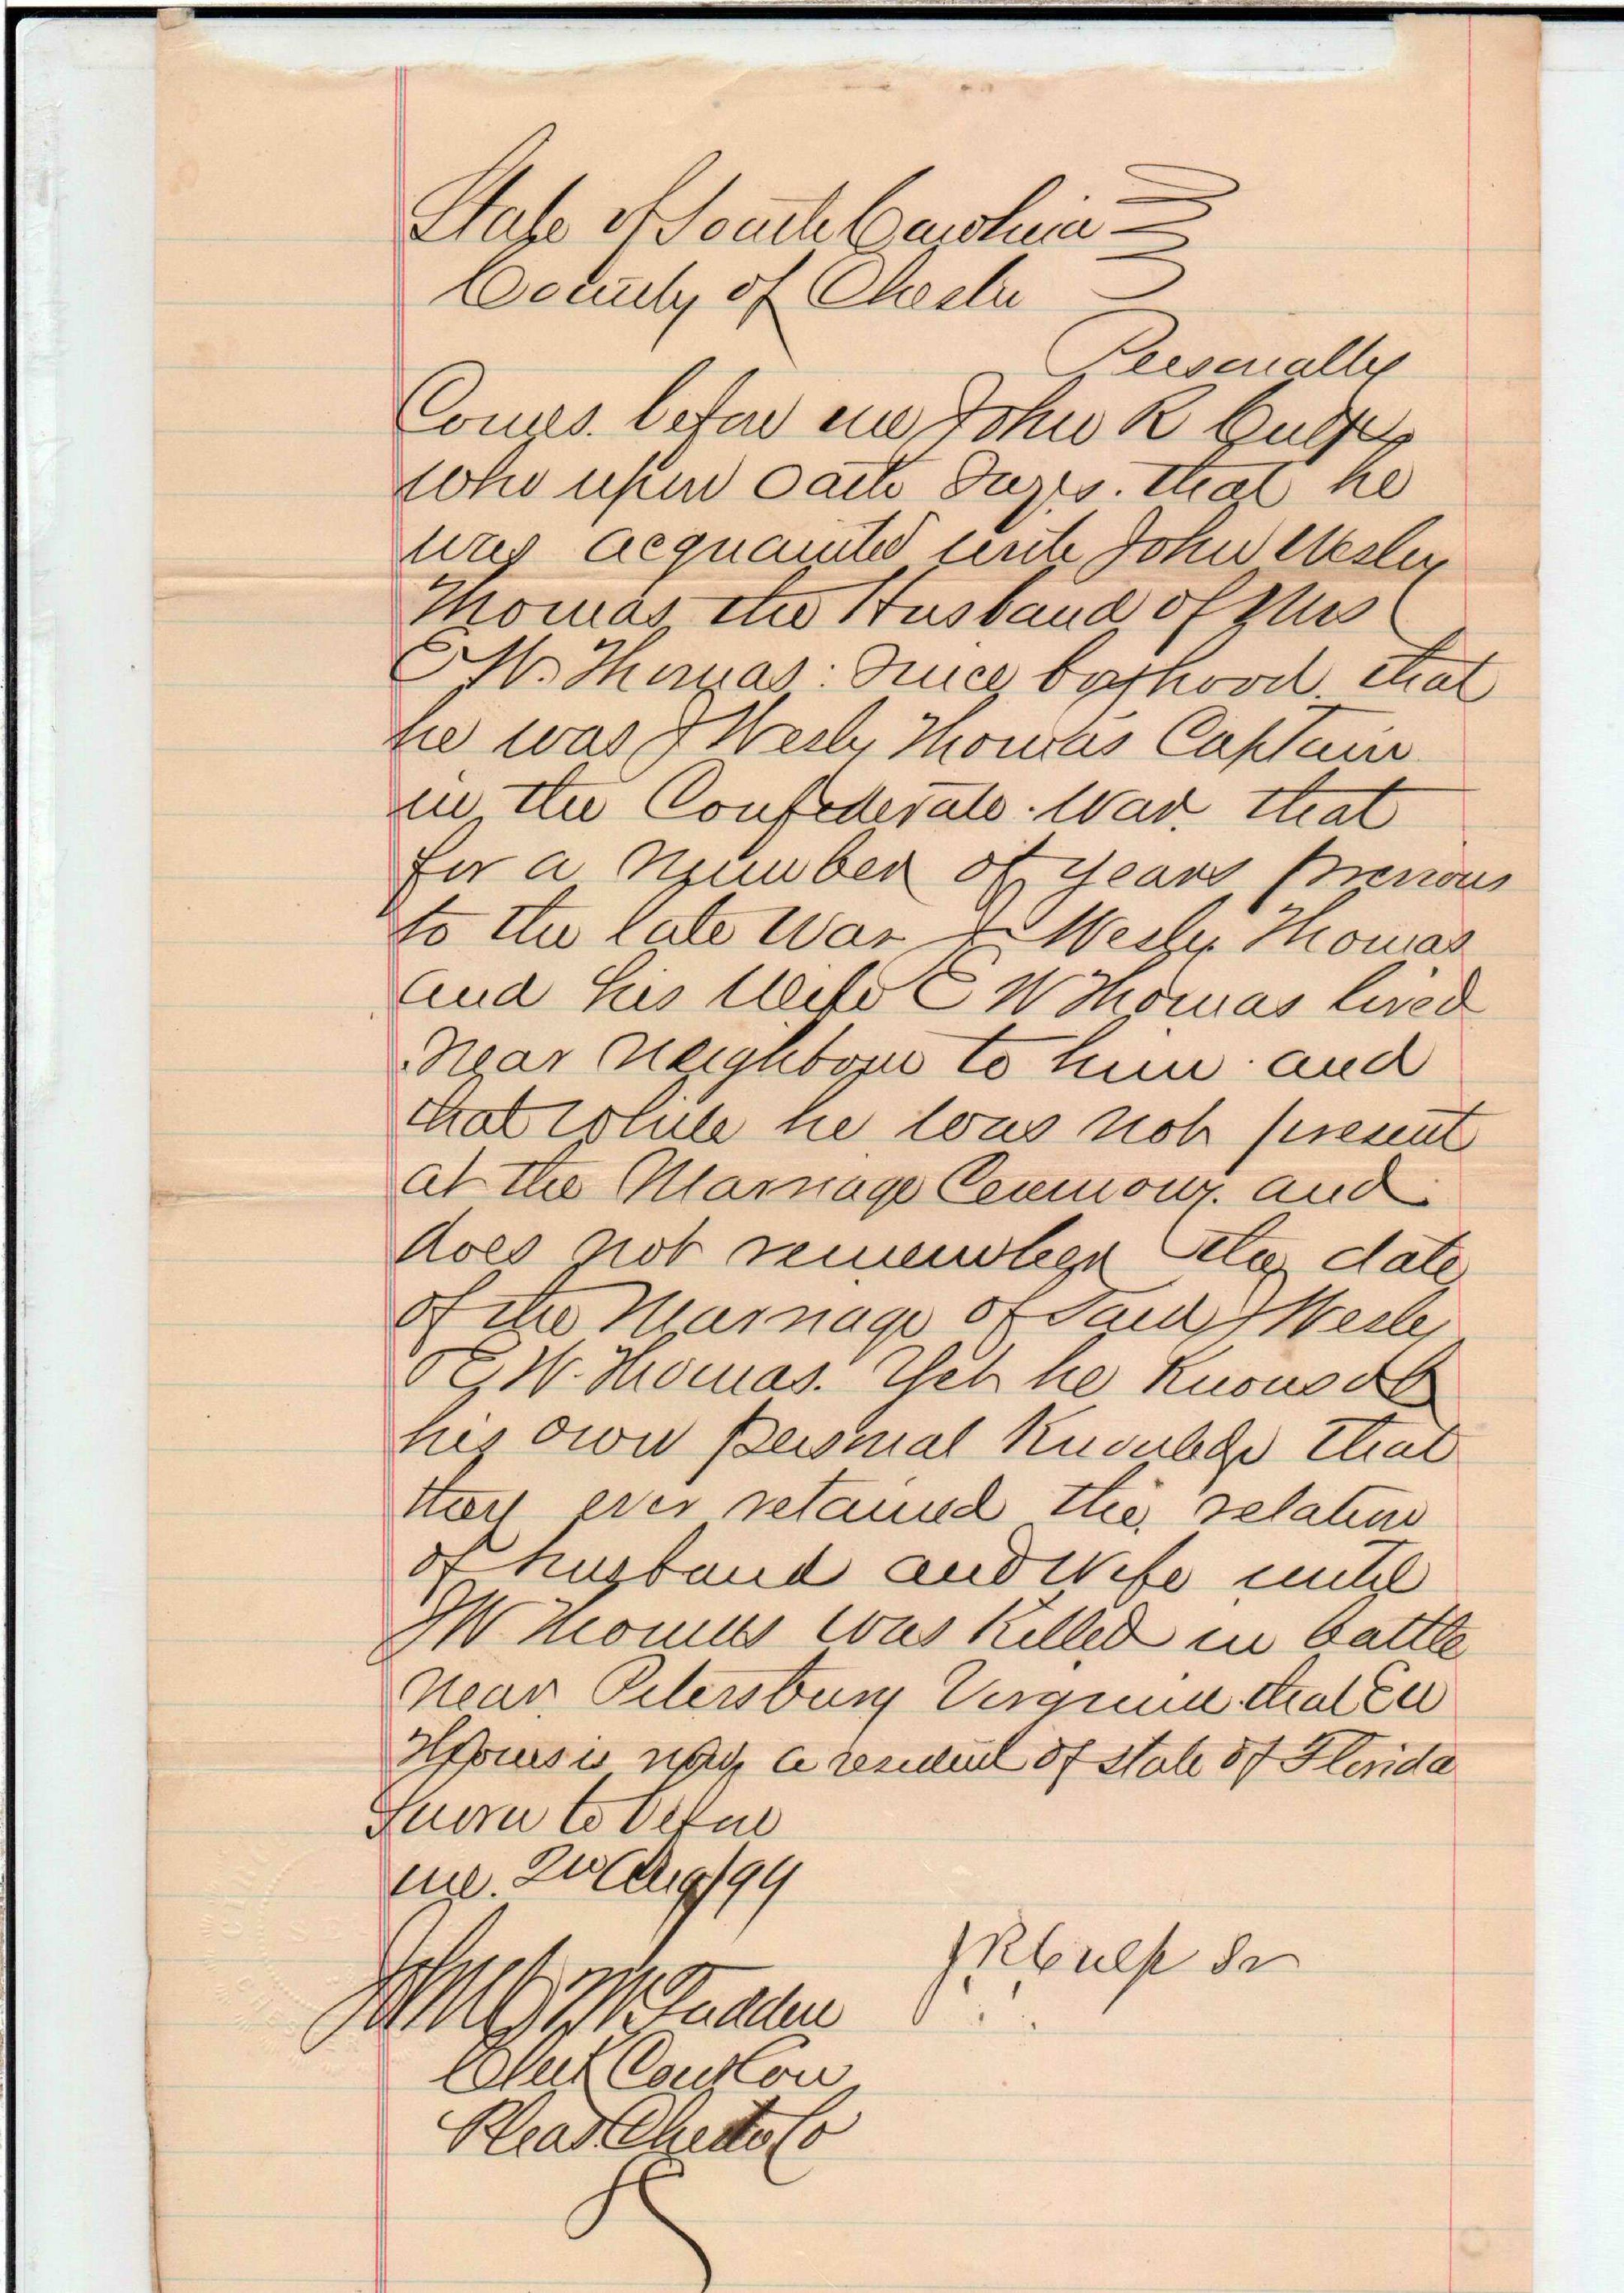 State of South Carolina
County of Chester
Personally
Comes. before me John R Culp
who upon oath Says. that he
was acquainted with John Wesley
Thomas the Husband of Mrs
E W. Thomas: Since boyhood. that
he was J Wesly Thomas Captain
in the Confederate. War. that
for a number of years previous
to the late War J Wesley Thomas
and his Wife E W Thomas lived
near neighbour to him. and
that while he was not present
at the Marriage Ceremony. and
does not remember the date
of the Marriage of Said J Wesley
& E. W. Thomas. Yet he knows of
his own personal knowledge that
they ever retained the relation
of husband and Wife until
J W Thomas was killed in battle
near Petersburg Virginia that E W
Thomas is now a resident of State of Florida
Sworn to before
me. 20 Aug/94
J R Culp Sr
McFadden
Clerk Court Com
Pleas Chester Co
SC